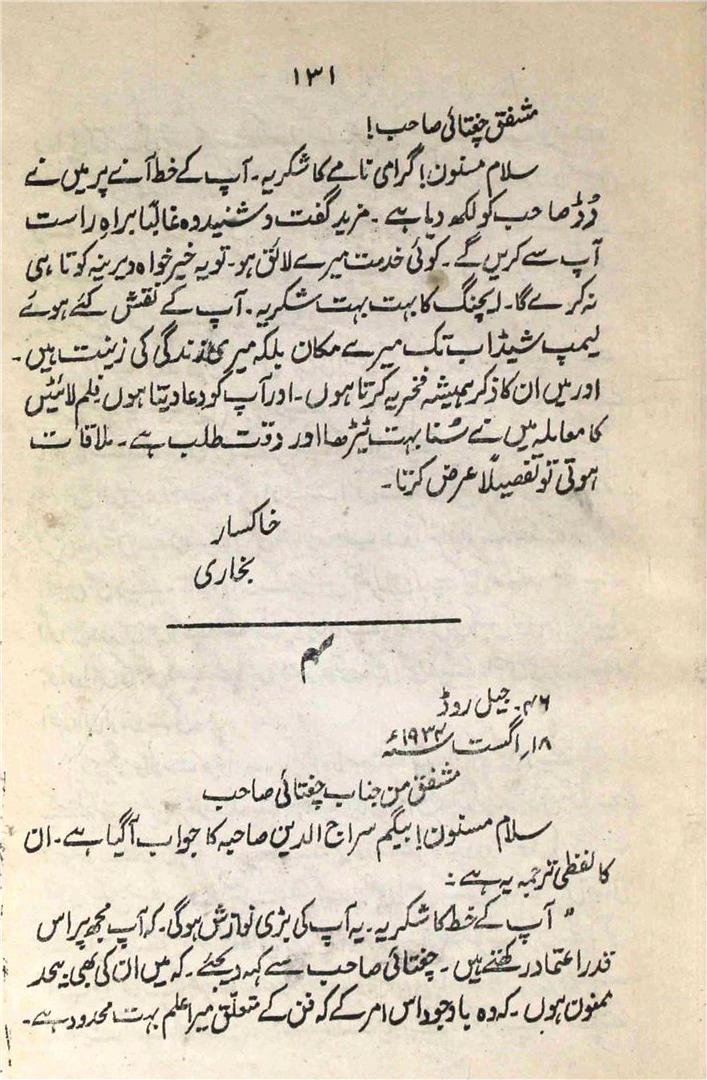 ۱۳۱
مشفق چغتائی صاحب!
سلام مسنون! گرامی نامے کا شکریہ۔ آپ کے خط آنے پر میں نے
ڈڈ صاحب کو لکھ دیا ہے۔ مزید گفت و شنید وہ غالباً براہِ راست
آپ سے کریں گے۔ کوئی خدمت میرے لائق ہو۔ تو یہ خیر خواہ دیرینہ کوتاہی
نہ کرے گا۔ ایچنگ کا بہت بہت شکریہ۔ آپ کے نقش کئے ہوئے
لیمپ شیڈ اب تک میرے مکان بلکہ میری زندگی کی زینت ہیں۔
اور میں ان کا ذکر ہمیشہ فخریہ کرتا ہوں۔ اور آپ کو دعا دیتا ہوں فلم لائیٹس
کا معاملہ میں نے سُنا بہت ٹیڑھا اور دقت طلب ہے۔ ملاقات
ہوتی تو تفصیلاً عرض کرتا۔
خاکسار
بخاری
۴
۴۶۔ جیل روڈ
۱۸ اگست ۱۹۳۴ء
مشفق من جناب چغتائی صاحب
سلام مسنون! بیگم سراج الدین صاحبہ کا جواب آ گیا ہے۔ ان
کا لفظی ترجمہ یہ ہے:
" آپ کے خط کا شکریہ۔ یہ آپ کی بڑی نوازش ہوگی۔ کہ آپ مجھ پر اس
قدر اعتماد رکھتے ہیں۔ چغتائی صاحب سے کہہ دیجئے۔ کہ میں ان کی بھی بیحد
ممنون ہوں۔ کہ وہ باوجود اس امر کے کہ فن کے متعلق میرا علم بہت محدود ہے۔